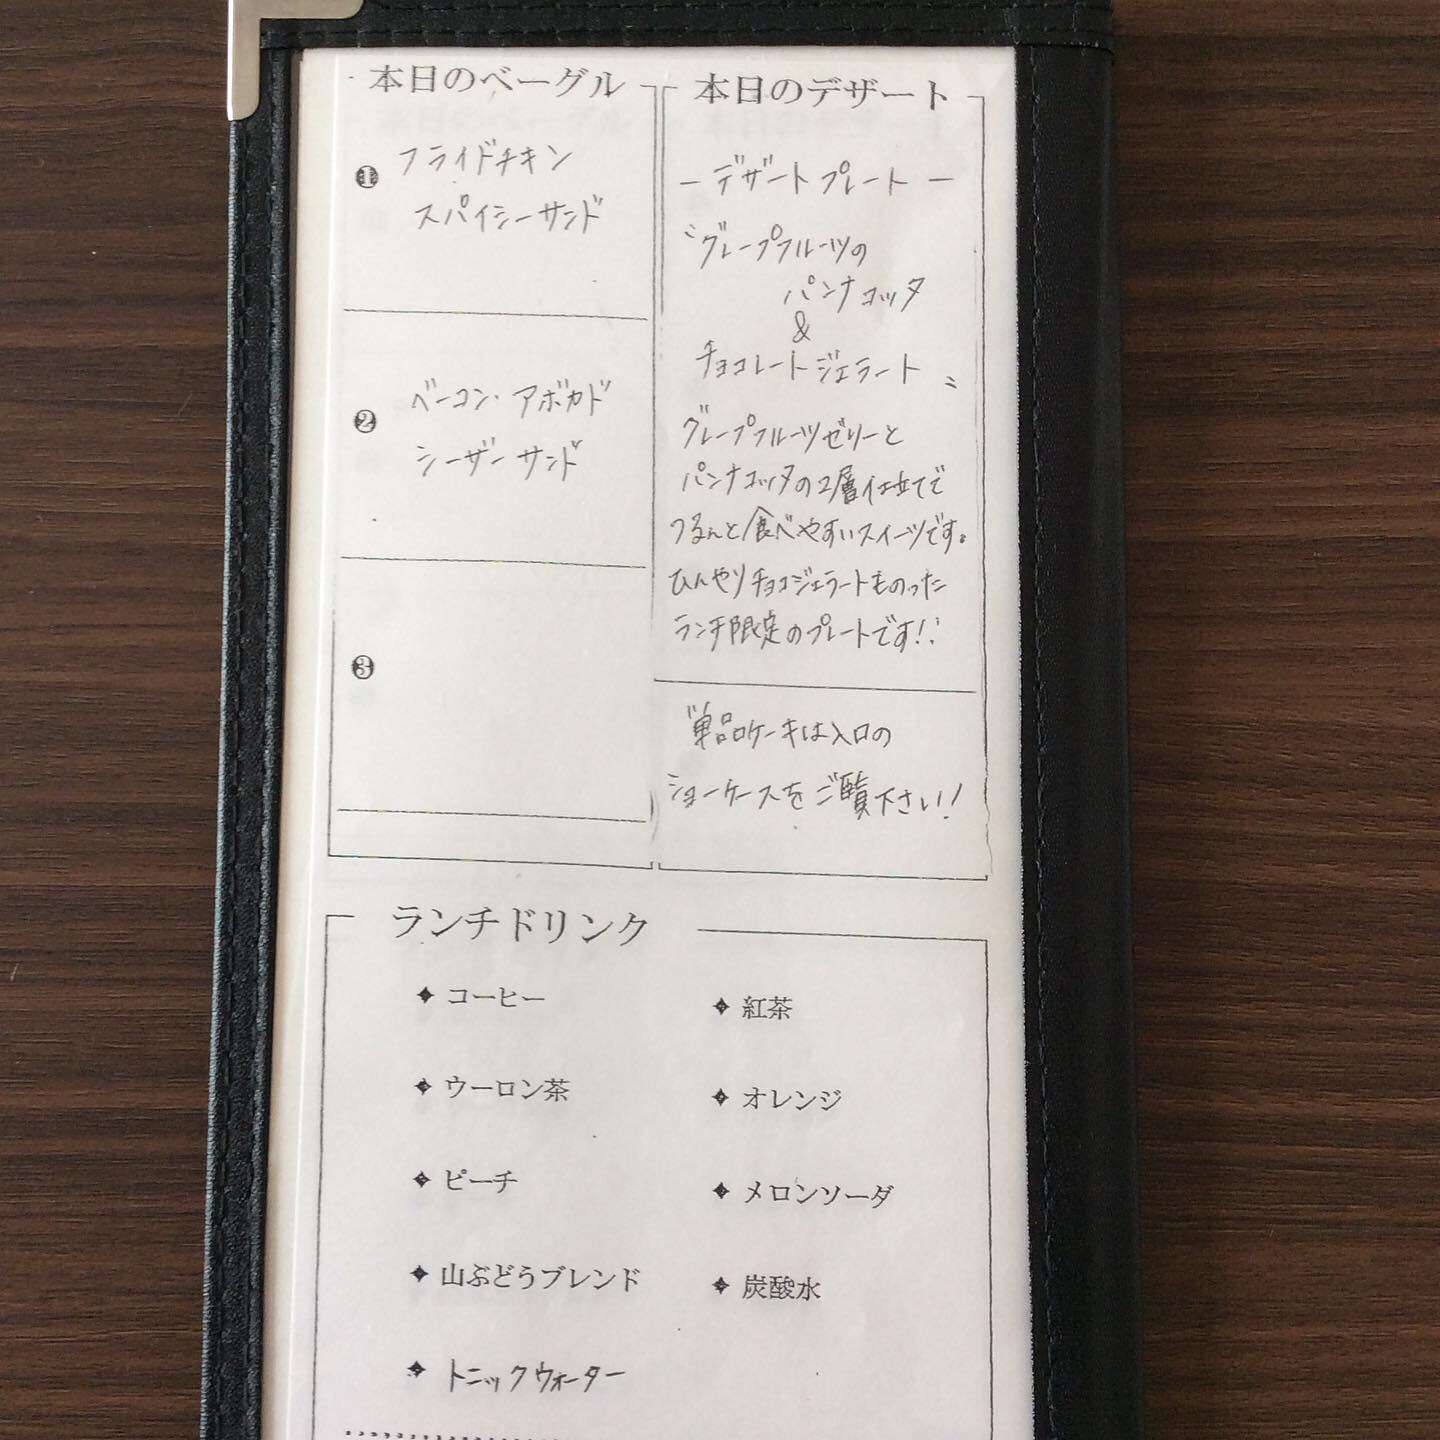 本日のベーグル
❶ フライドチキン
スパイシーサンド
❷ ベーコン・アボカド
シーザーサンド
❸
本日のデザート
ーデザートプレートー
〝グレープフルーツの
パンナコッタ
&
チョコレートジェラート〟
グレープフルーツゼリーと
パンナコッタの2層仕立てで
つるんと食べやすいスイーツです。
ひんやりチョコジェラートものった
ランチ限定のプレートです!!
〝単品ケーキは入口の
ショーケースをご覧下さい!!
ランチドリンク
コーヒー
紅茶
ウーロン茶
オレンジ
ピーチ
メロンソーダ
山ぶどうブレンド
炭酸水
トニックウォーター